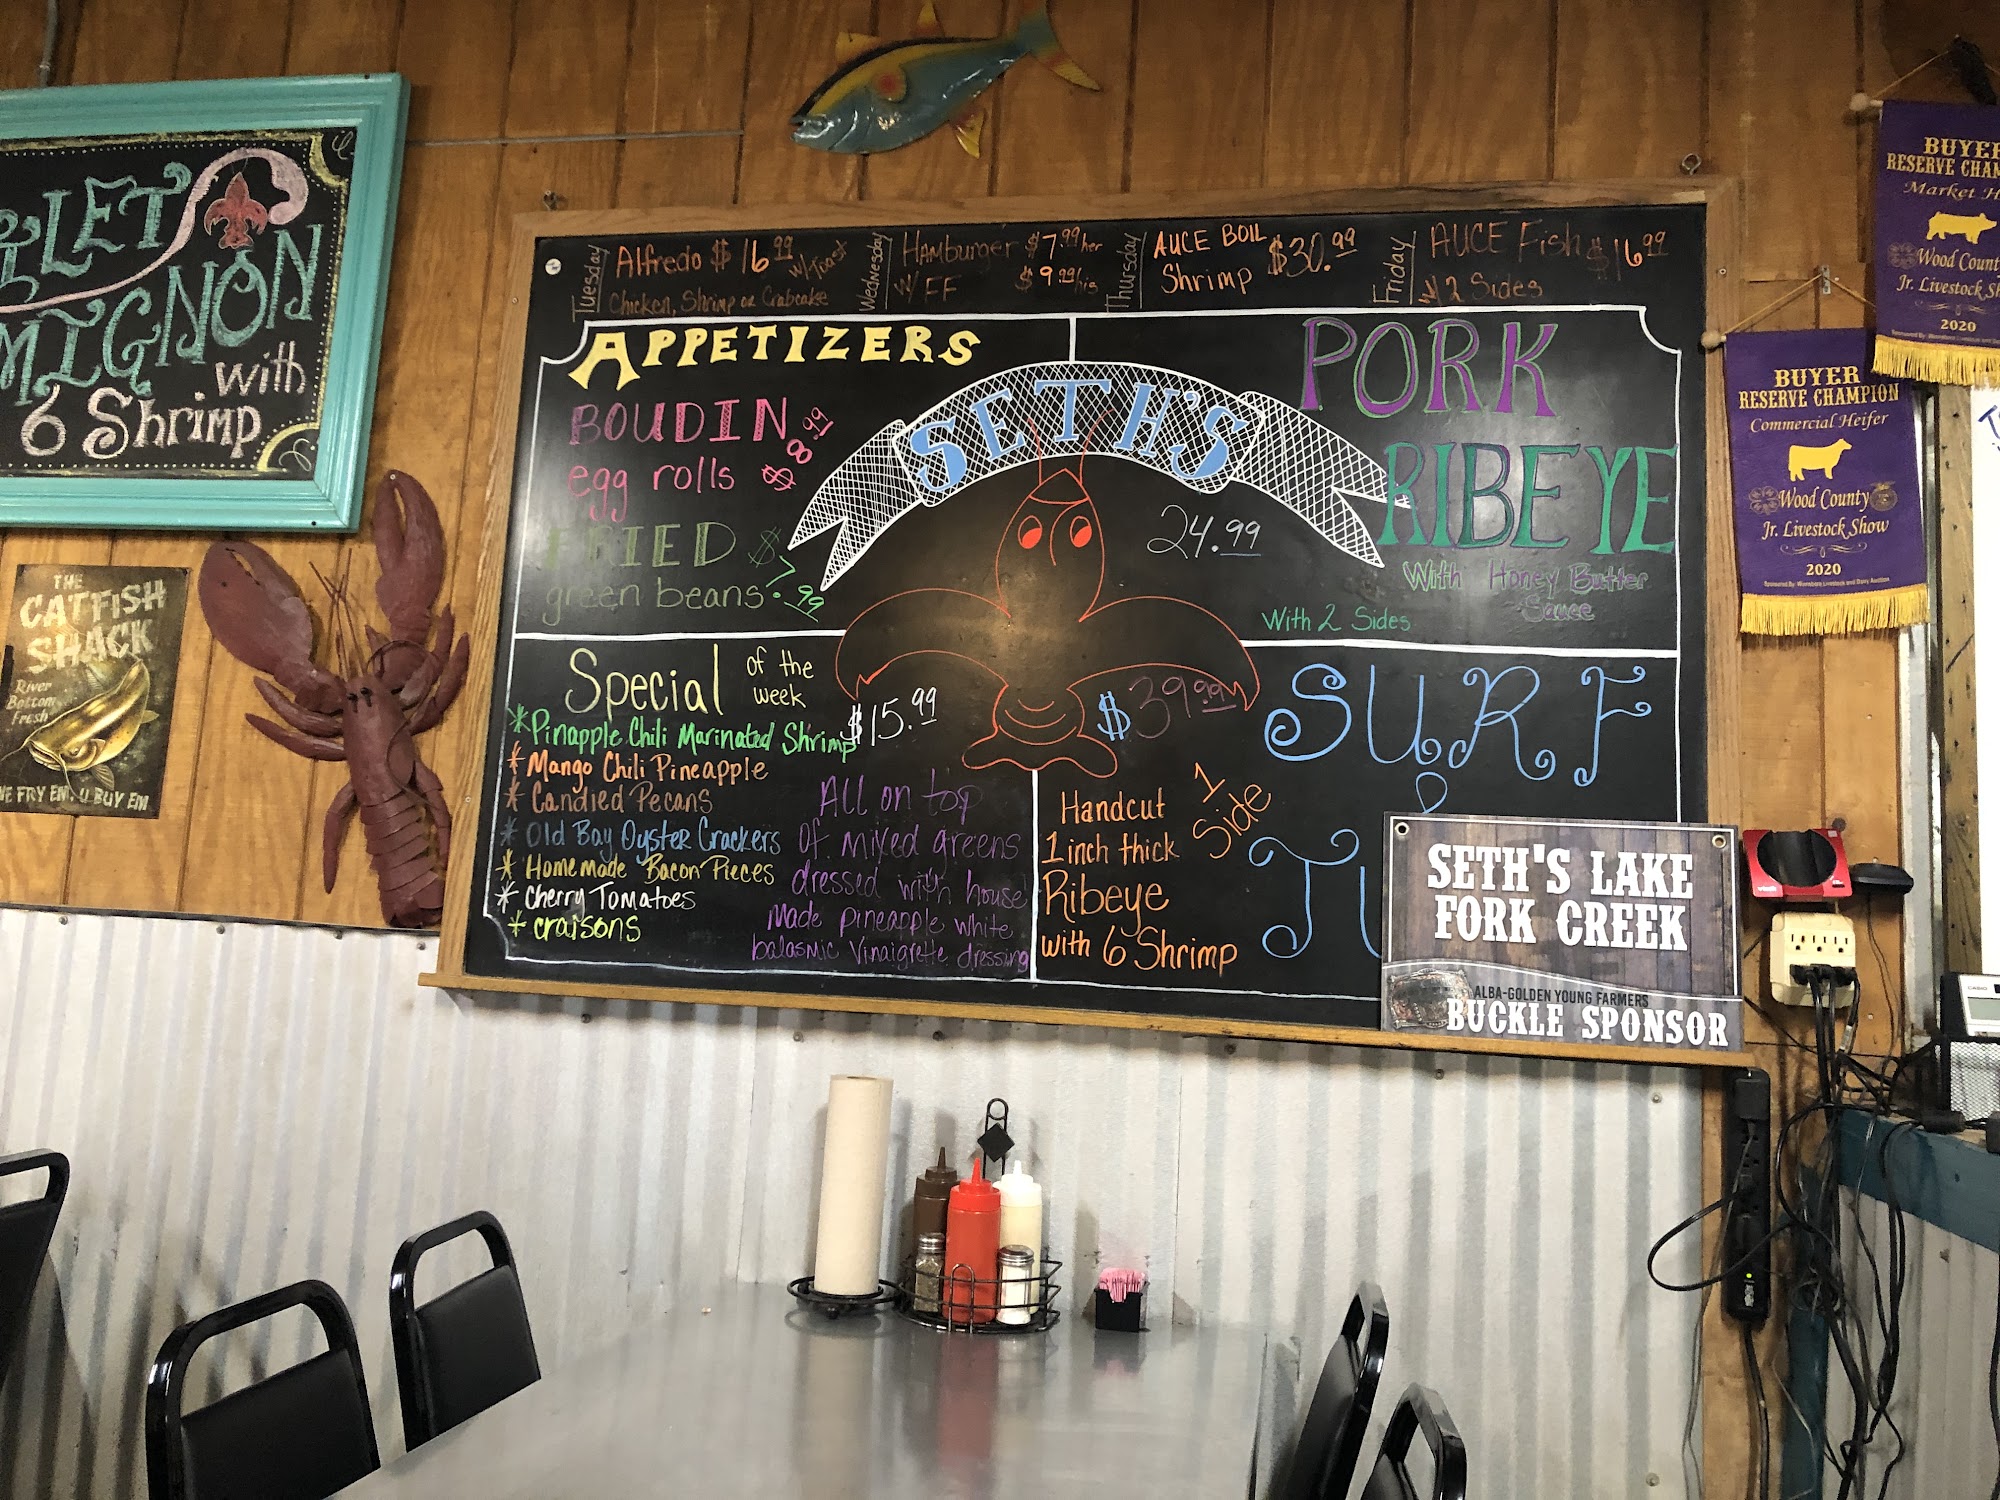 LET
MIGNON
with
6 Shrimp
THE
CATFISH
SHACK
River
Bottom
Fresh
WE FRY EM, U BUY EM
Tuesday
Alfredo $16.99 w/Toast
Chicken, Shrimp or Crabcake
Wednesday
Hamburger $7.99 her
w/ FF $9.99 his
Thursday
AUCE BOIL
Shrimp $30.99
Friday
AUCE Fish $16.99
w/ 2 Sides
APPETIZERS
BOUDIN
egg rolls $8.99
FRIED
green beans $7.99
SETH'S
PORK
RIBEYE
24.99
With Honey Butter
Sauce
With 2 Sides
Special of the
week
$15.99
*Pinapple Chili Marinated Shrimp
*Mango Chili Pineapple
*Candied Pecans
*Old Bay Oyster Crackers
*Homemade Bacon Pieces
*Cherry Tomatoes
*craisons
All on top
of mixed greens
dressed with house
made pineapple white
balasmic Vinaigrette dressing
$39.99
SURF
Handcut
1 inch thick
Ribeye
with 6 Shrimp
1
Side
SETH'S LAKE
FORK CREEK
ALBA-GOLDEN YOUNG FARMERS
BUCKLE SPONSOR
BUYER
RESERVE CHAMPION
Commercial Heifer
Wood County
Jr. Livestock Show
2020
BUYER
RESERVE CHAM
Market H
Wood Count
Jr. Livestock Sh
2020
CASIO